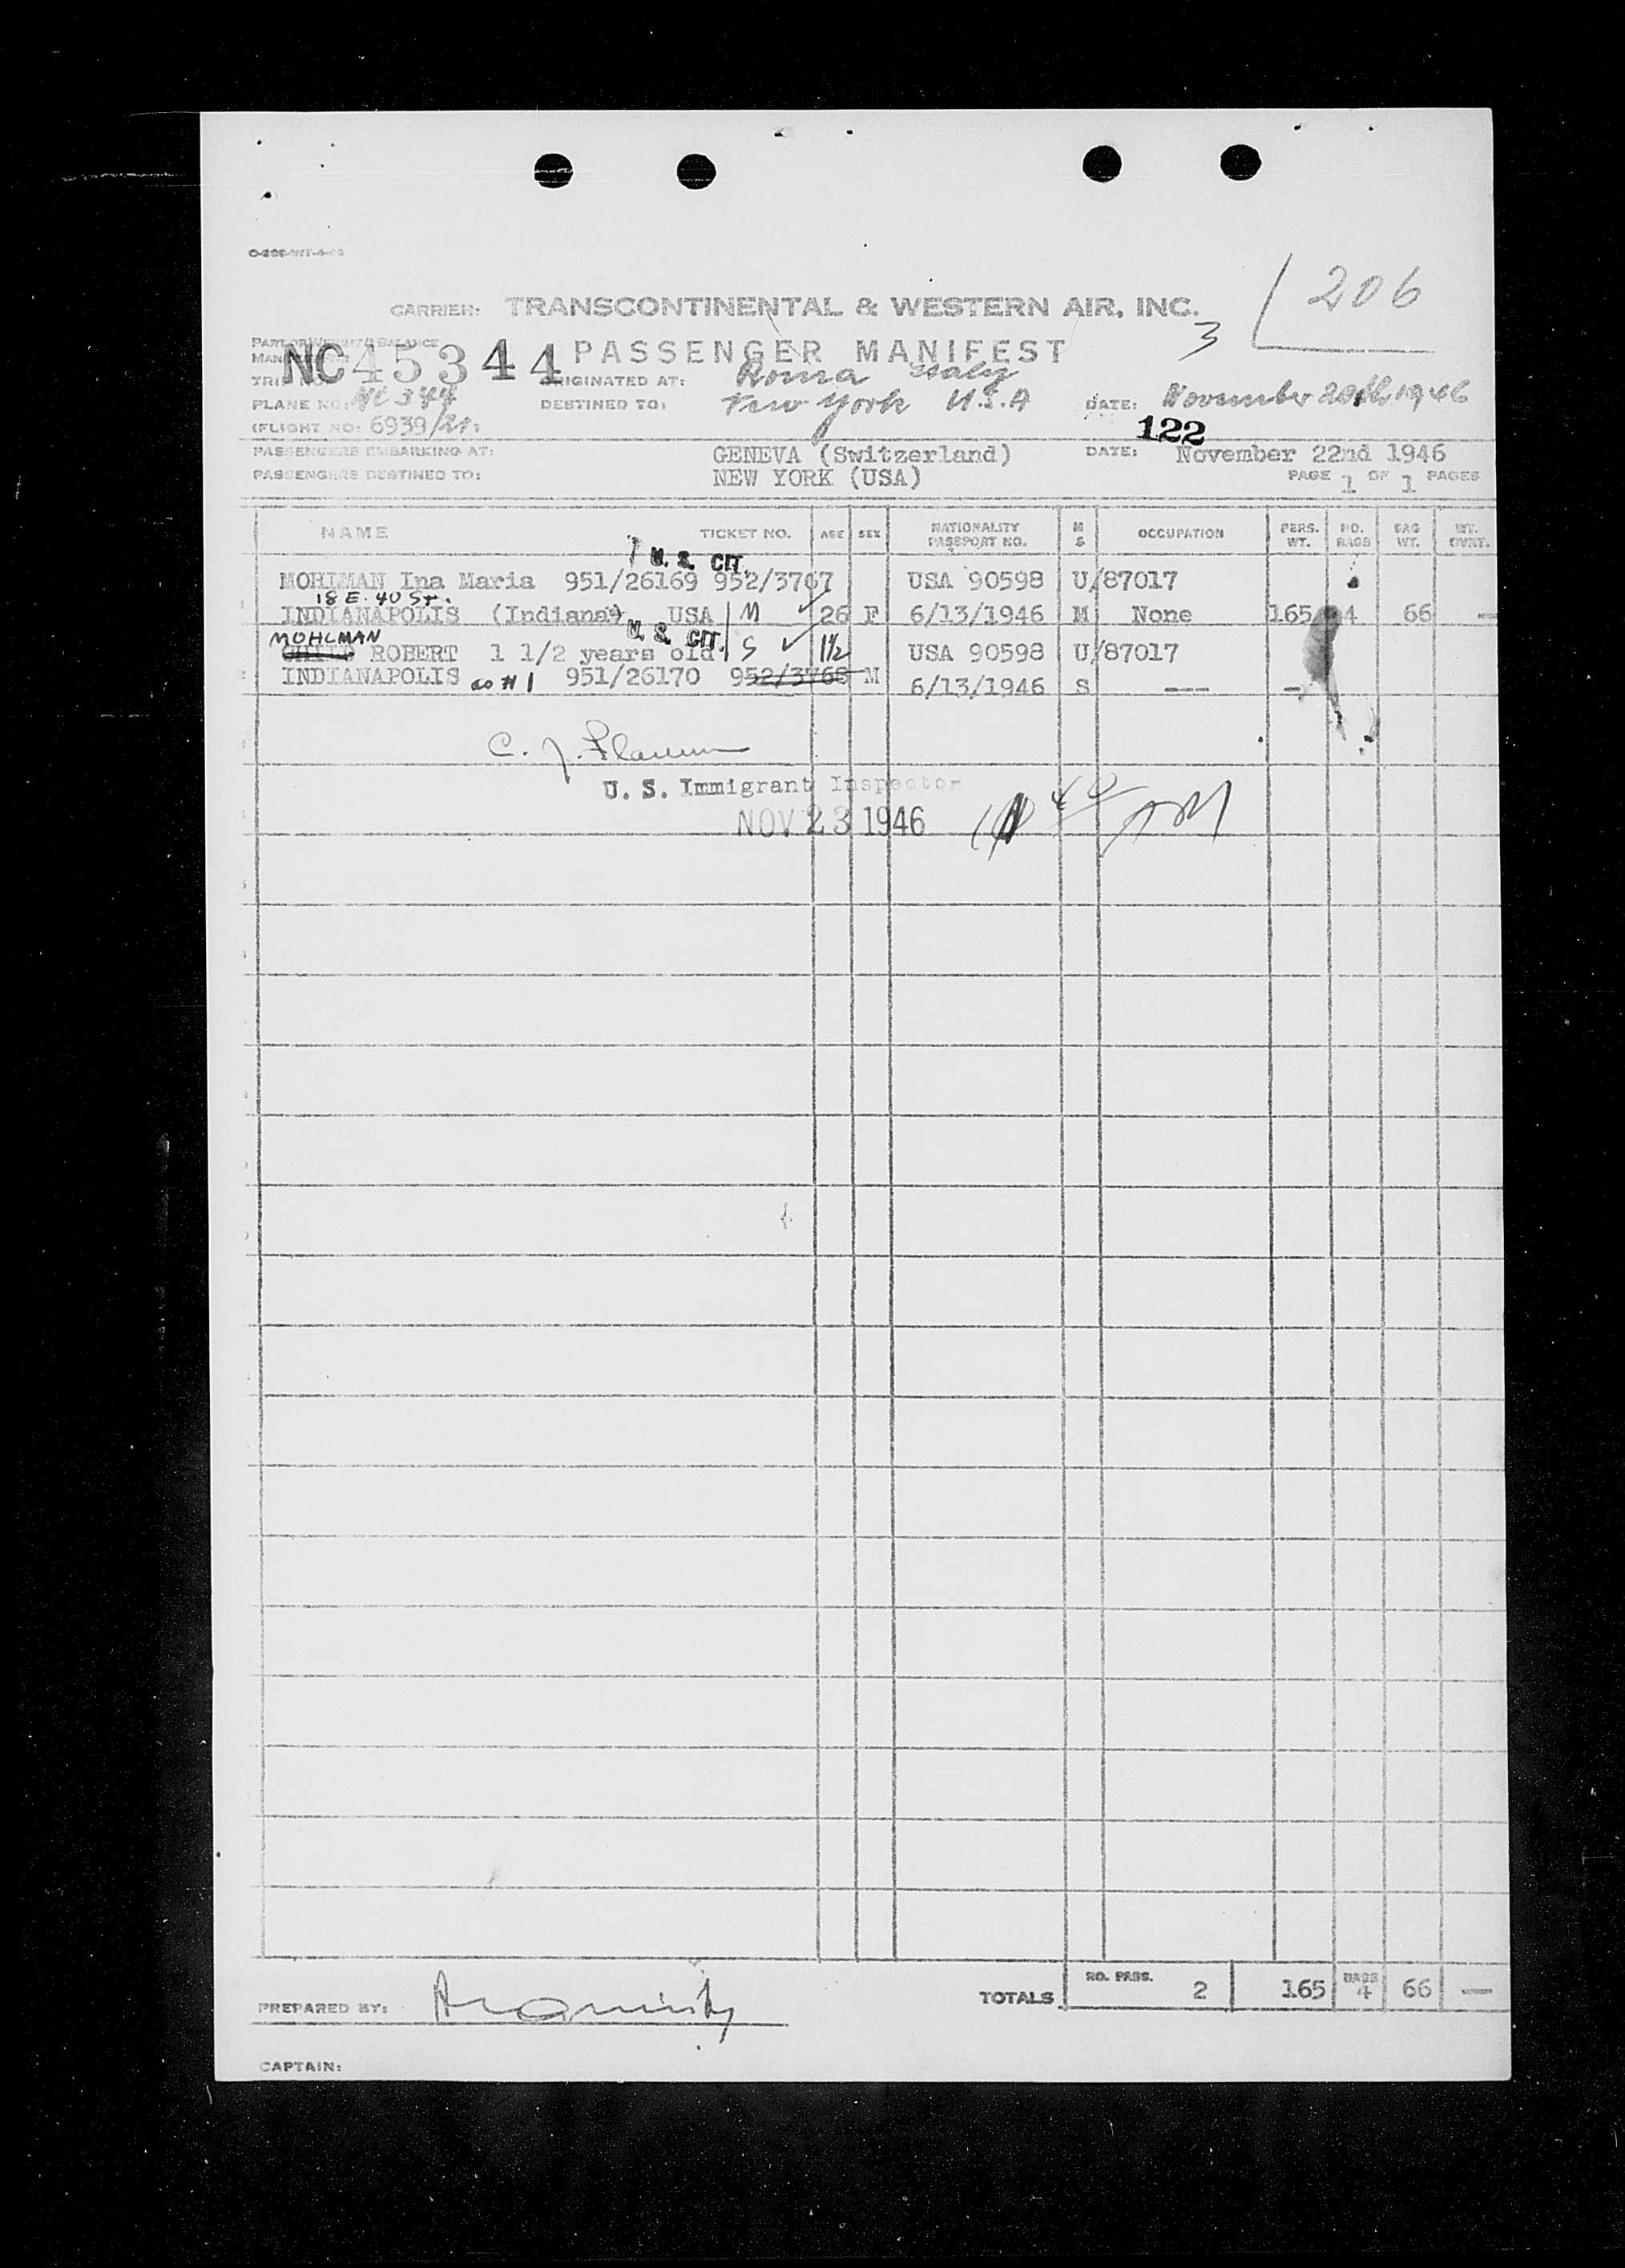 206
CARRIER: TRANSCONTINENTAL & WESTERN AIR, INC.
3
NC45344 PASSENGER MANIFEST
ORIGINATED AT: Roma Italy
PLANE NO: NC 344 DESTINED TO: New York U.S.A DATE: November 20th 1946
(FLIGHT NO: 6939/21)
122
PASSENGERS EMBARKING AT: GENEVA (Switzerland) DATE: November 22nd 1946
PASSENGERS DESTINED TO: NEW YORK (USA) PAGE 1 OF 1 PAGES
NAME TICKET NO. AGE SEX NATIONALITY PASSPORT NO. M S OCCUPATION PERS. WT. NO. BAGS BAG WT. WT. OVRT.
U. S. CIT.
MOHIMAN Ina Maria 951/26169 952/3767 USA 90598 U/87017
18 E. 40 St.
INDIANAPOLIS (Indiana) USA M 26 F 6/13/1946 M None 165 4 66 —
MOHLMAN U. S. CIT.
CHILD ROBERT 1 1/2 years old S 1½ USA 90598 U/87017
INDIANAPOLIS as #1 951/26170 952/3768 M 6/13/1946 S --- -
U. S. Immigrant Inspector
NOV 23 1946
TOTALS NO. PASS. 2 165 BAGS 4 66 —
PREPARED BY:
CAPTAIN: